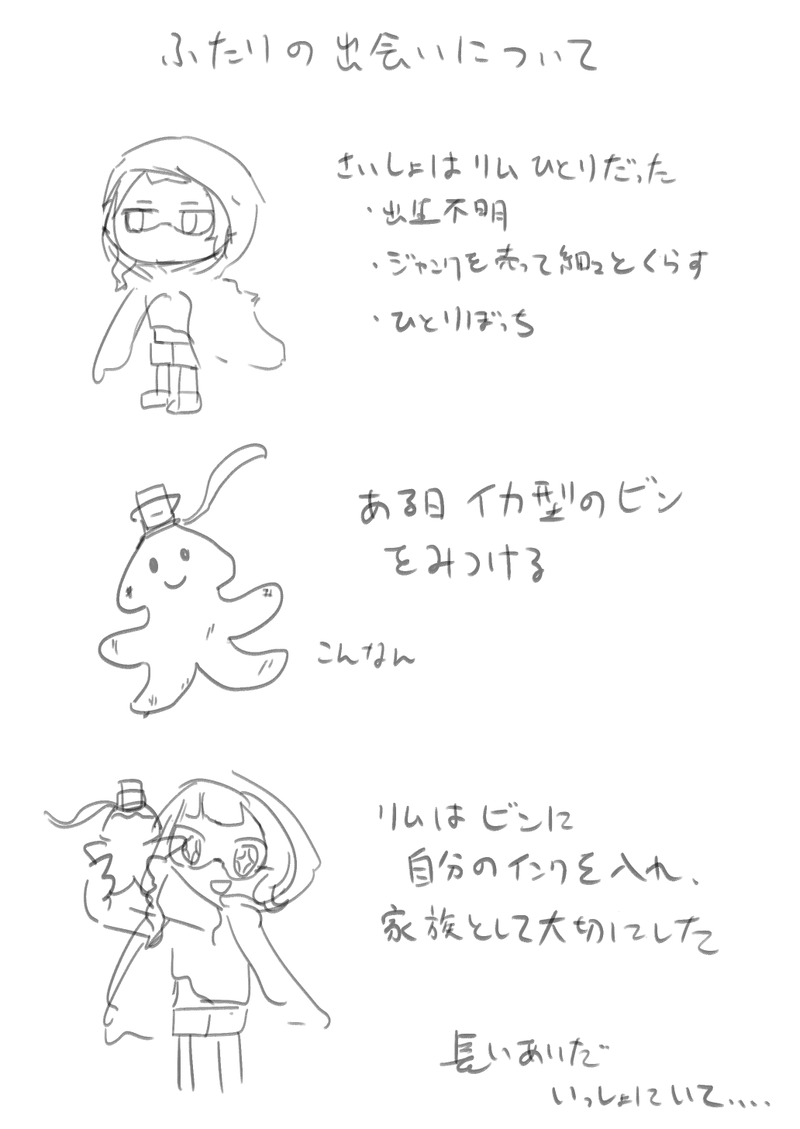 ふたりの出会いについて
さいしょは リム ひとりだった
・出生不明
・ジャンクを売って細々とくらす
・ひとりぼっち
ある日 イカ型のビン
をみつける
こんなん
リムは ビンに
自分のインクを入れ、
家族として大切にした
長いあいだ
いっしょにいて....